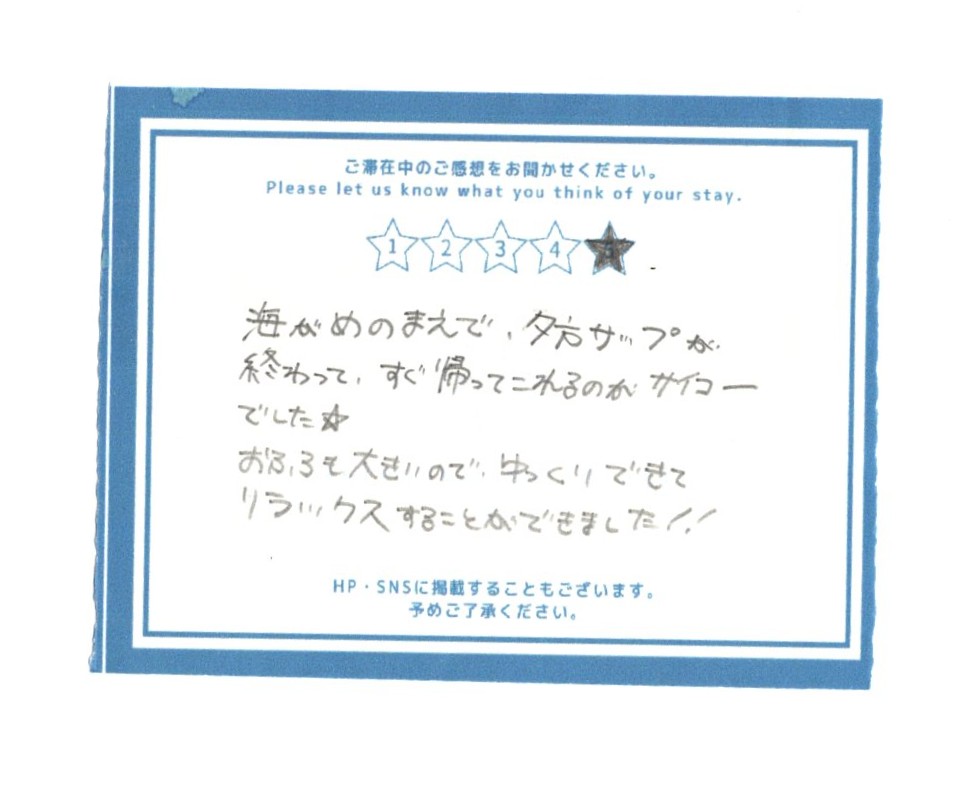 ご滞在中のご感想をお聞かせください。
Please let us know what you think of your stay.
1 2 3 4 5
海がめのまえで、夕方サップが
終わって、すぐ帰ってこれるのがサイコー
でした☆
おふろも大きいので、ゆっくりできて
リラックスすることができました!!
HP・SNSに掲載することもございます。
予めご了承ください。